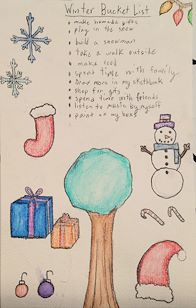 Winter Bucket List
* make homemade gifts
* play in the snow
* build a snowman
* take a walk outside
* make food
* spend time with family
* draw more in my sketchbook
* shop for gifts
* spend time with friends
* listen to music by myself
* paint on my